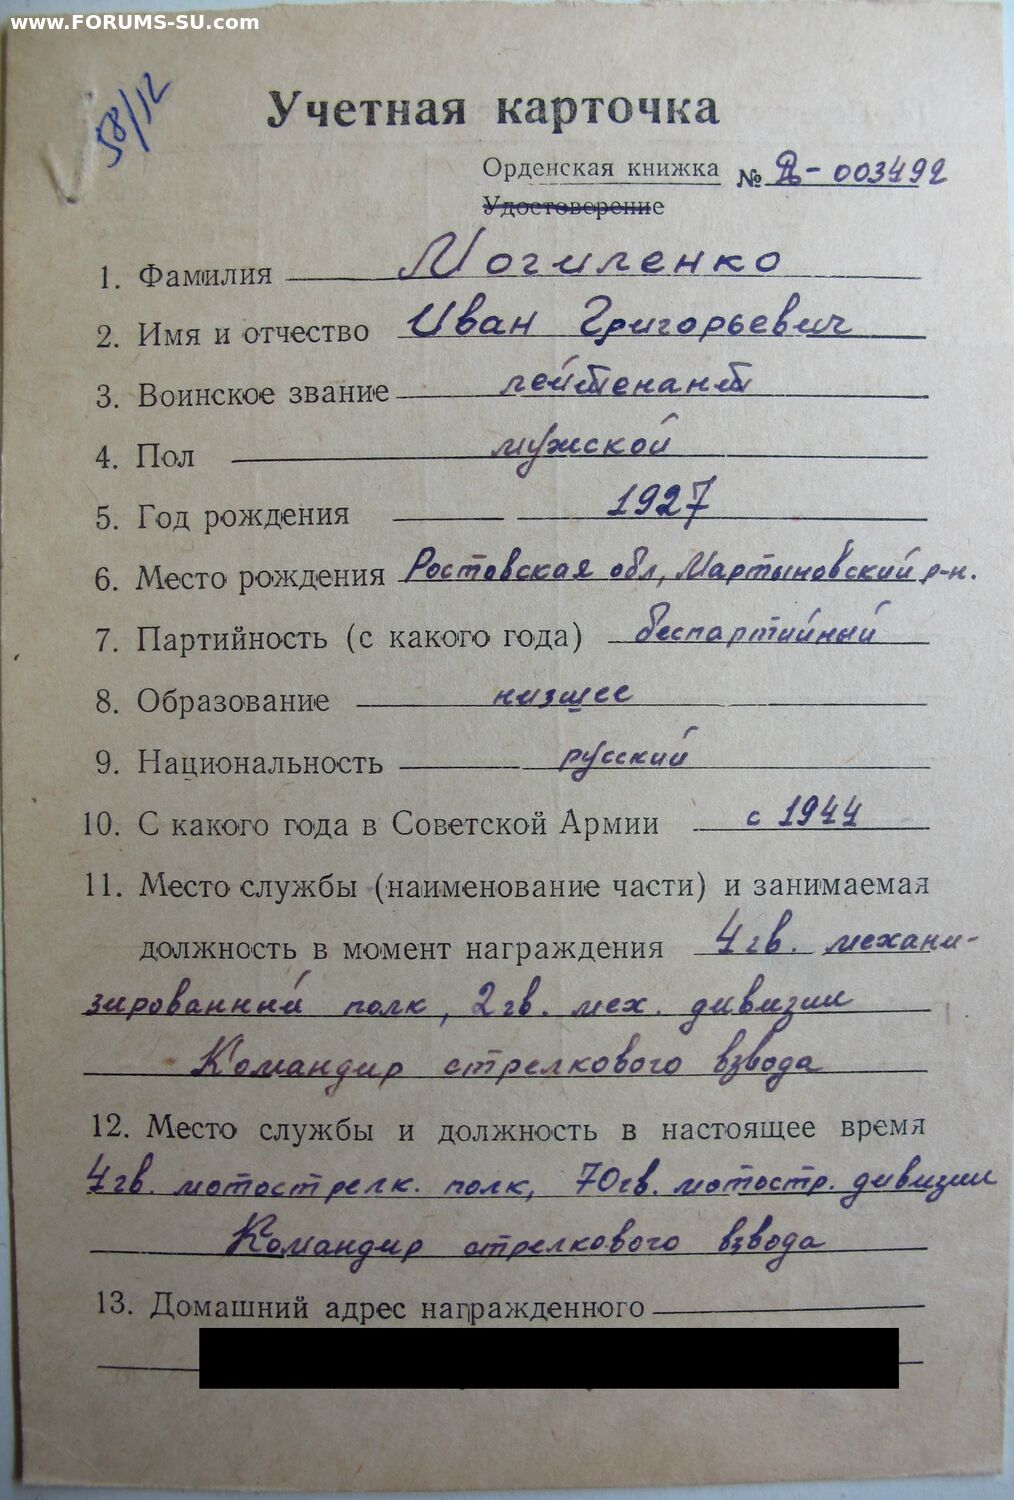 www.FORUMS-SU.com
58/12
Учетная карточка
Орденская книжка № Д-003492
Удостоверение
1. Фамилия Могиленко
2. Имя и отчество Иван Григорьевич
3. Воинское звание лейтенант
4. Пол мужской
5. Год рождения 1927
6. Место рождения Ростовская обл, Мартыновский р-н.
7. Партийность (с какого года) беспартийный
8. Образование низшее
9. Национальность русский
10. С какого года в Советской Армии с 1944
11. Место службы (наименование части) и занимаемая
должность в момент награждения 4 гв. механи-
зированный полк, 2 гв. мех. дивизии
Командир стрелкового взвода
12. Место службы и должность в настоящее время
4 гв. мотострелк. полк, 70 гв. мотостр. дивизии
Командир стрелкового взвода
13. Домашний адрес награжденного